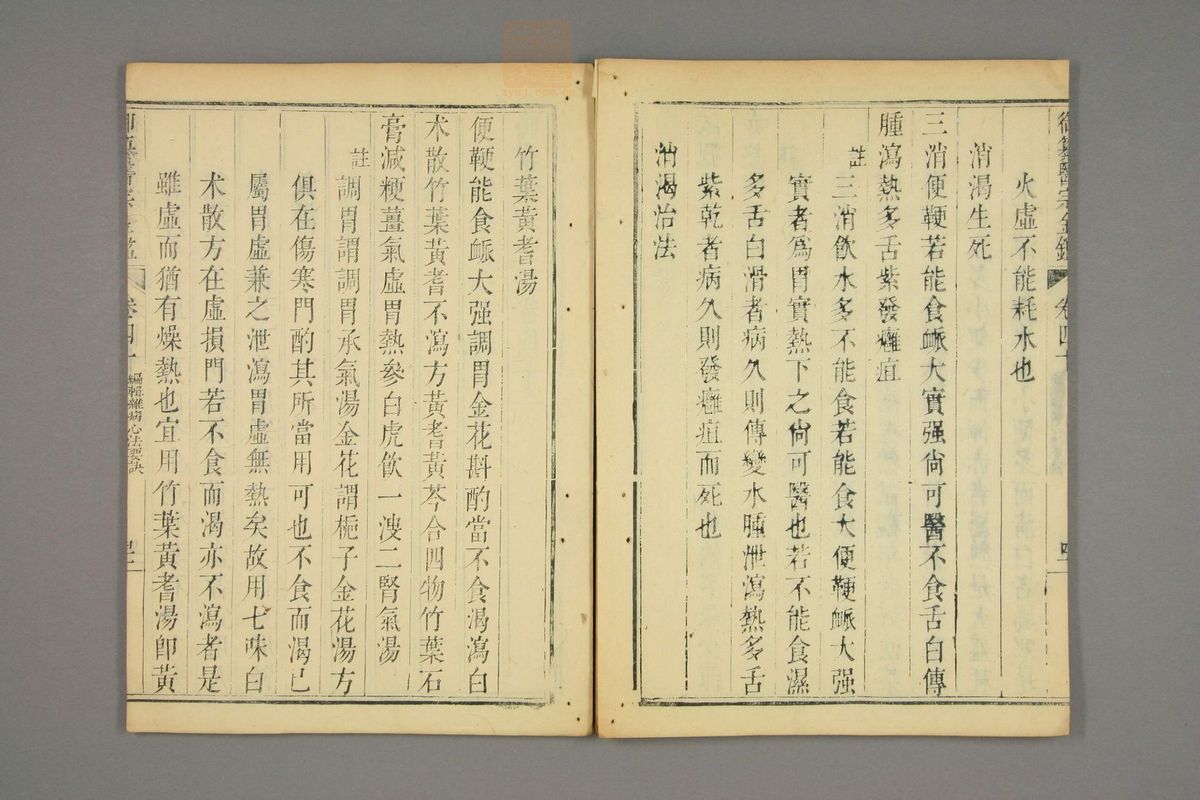 御纂醫宗金鑑 卷四十
火虛不能耗水也
消渴生死
三消便鞕若能食衇大實强尙可醫不食舌白傳
腫瀉熱多舌紫發癰疽
註三消飲水多不能食若能食大便鞕衇大强
實者爲胃實熱下之尙可醫也若不能食濕
多舌白滑者病久則傳變水腫泄瀉熱多舌
紫乾者病久則發癰疽而死也
消渴治法
竹葉黃耆湯
便鞕能食衇大强調胃金花斟酌當不食渴瀉白
朮散竹葉黃耆不瀉方黃耆黃芩合四物竹葉石
膏減粳薑氣虛胃熱參白虎飲一溲二腎氣湯
註調胃謂調胃承氣湯金花謂梔子金花湯方
俱在傷寒門酌其所當用可也不食而渴已
屬胃虛兼之泄瀉胃虛無熱矣故用七味白
朮散方在虛損門若不食而渴亦不瀉者是
雖虛而猶有燥熱也宜用竹葉黃耆湯卽黃
編輯雜病心法要訣